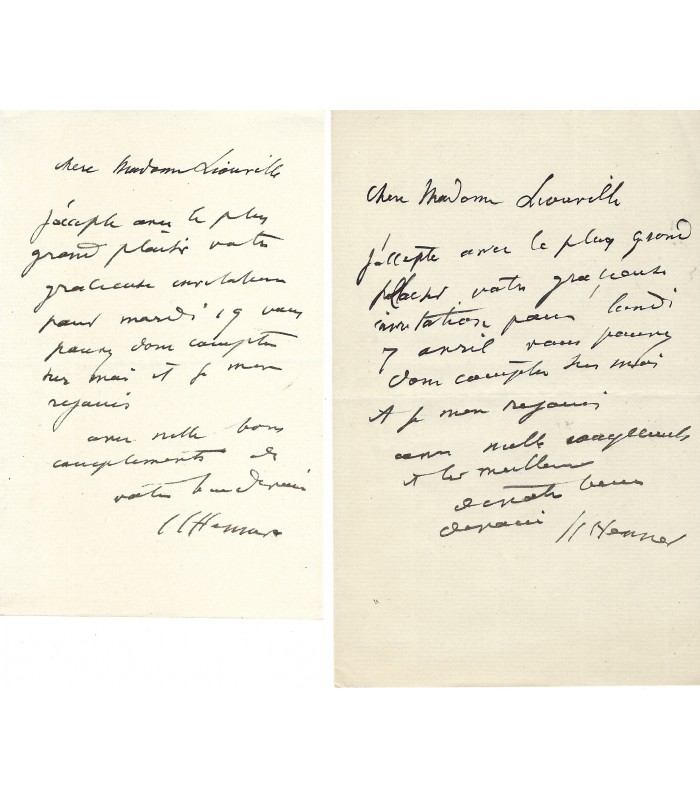 chere Madame Liouville
j'accepte avec le plus
grand plaisir votre
gracieuse invitation
pour mardi 19 vous
pouvez donc compter
sur moi et je m'en
rejouis
avec mille bons
compliments de
votre bien devoué
JJHenner
Chere Madame Liouville
j'accepte avec le plus grand
plaisir votre gracieuse
invitation pour lundi
7 avril vous pouvez
donc compter sur moi
et je m'en rejouis
avec mille
et les meilleurs
de votre bien
devoué JJHenner